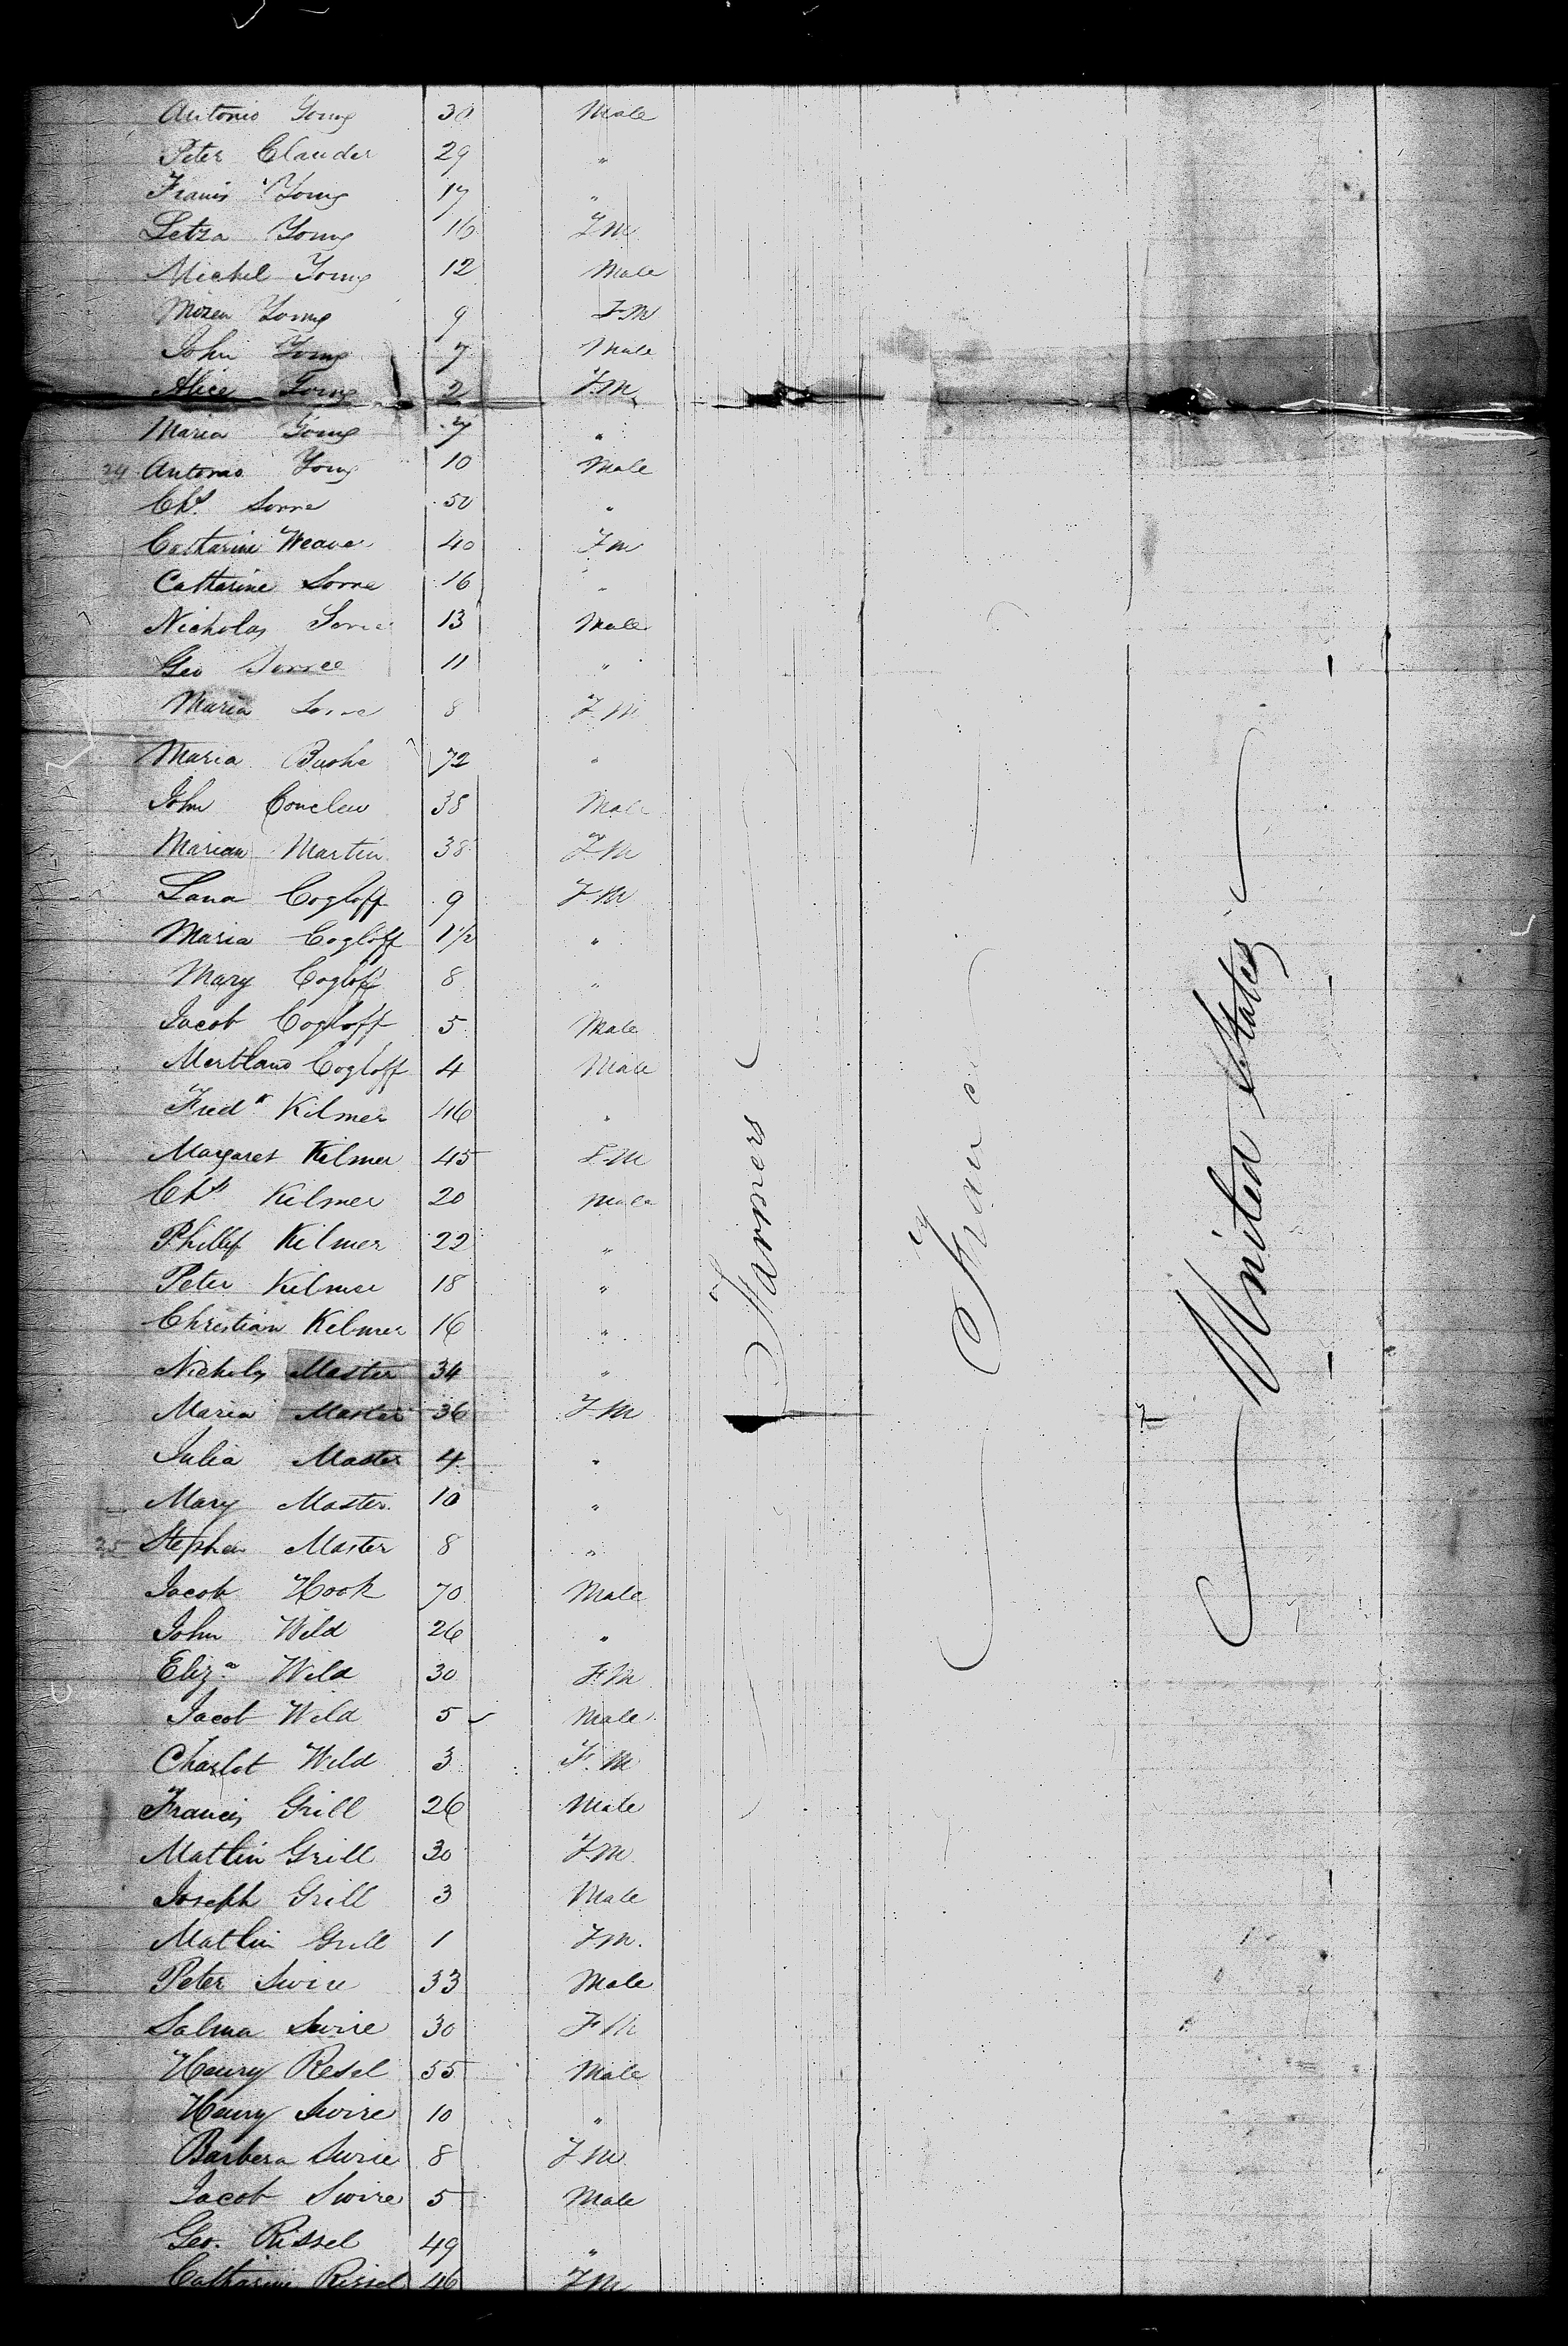 Antonio Young 30 Male
Peter Clauder 29 "
Francis Young 17 "
Letza Young 16 F M
Michel Young 12 Male
Mozea Young 9 F M
John Young 7 Male
Alice Young 2 F.M.
Maria Young 7 "
24 Antonio Young 10 Male
Chs. Sorne 50 "
Catharine Weaver 40 F M
Catharine Sorne 16 "
Nicholas Sorne 13 Male
Geo Sorne 11 "
Maria Sorne 8 F.M
Maria 72 "
John 38 Male
Marian Martin 38 F.M
Lana Cogloff 9 F.M
Maria Cogloff 1 1/2 "
Mary Cogloff 8 "
Jacob Cogloff 5 Male
Cogloff 4 Male
Fredk Kilmer 46 "
Margaret Kilmer 45 F.M
Chs Kilmer 20 Male
Phillip Kilmer 22 "
Peter Kilmer 18 "
Christian Kilmer 16 "
Nicholas Master 34 "
Maria Master 36 F M
Julia Master 4 "
Mary Master 10 "
25 Stephen Master 8 "
Jacob Hook 70 Male
John Wild 26 "
Eliza Wild 30 F.M
Jacob Wild 5 Male
Charlot Wild 3 F.M
Francis Grill 26 Male
Matlin Grill 30 F.M
Joseph Grill 3 Male
Matlin Grill 1 F.M.
Peter Swire 33 Male
Salma Swire 30 F M
Henry Resel 55 Male
Henry Swire 10 "
Barbera Swire 8 F.M
Jacob Swire 5 Male
Geo. Rissel 49 "
Catharine Rissel 46 F.M
Farmers
France
United States